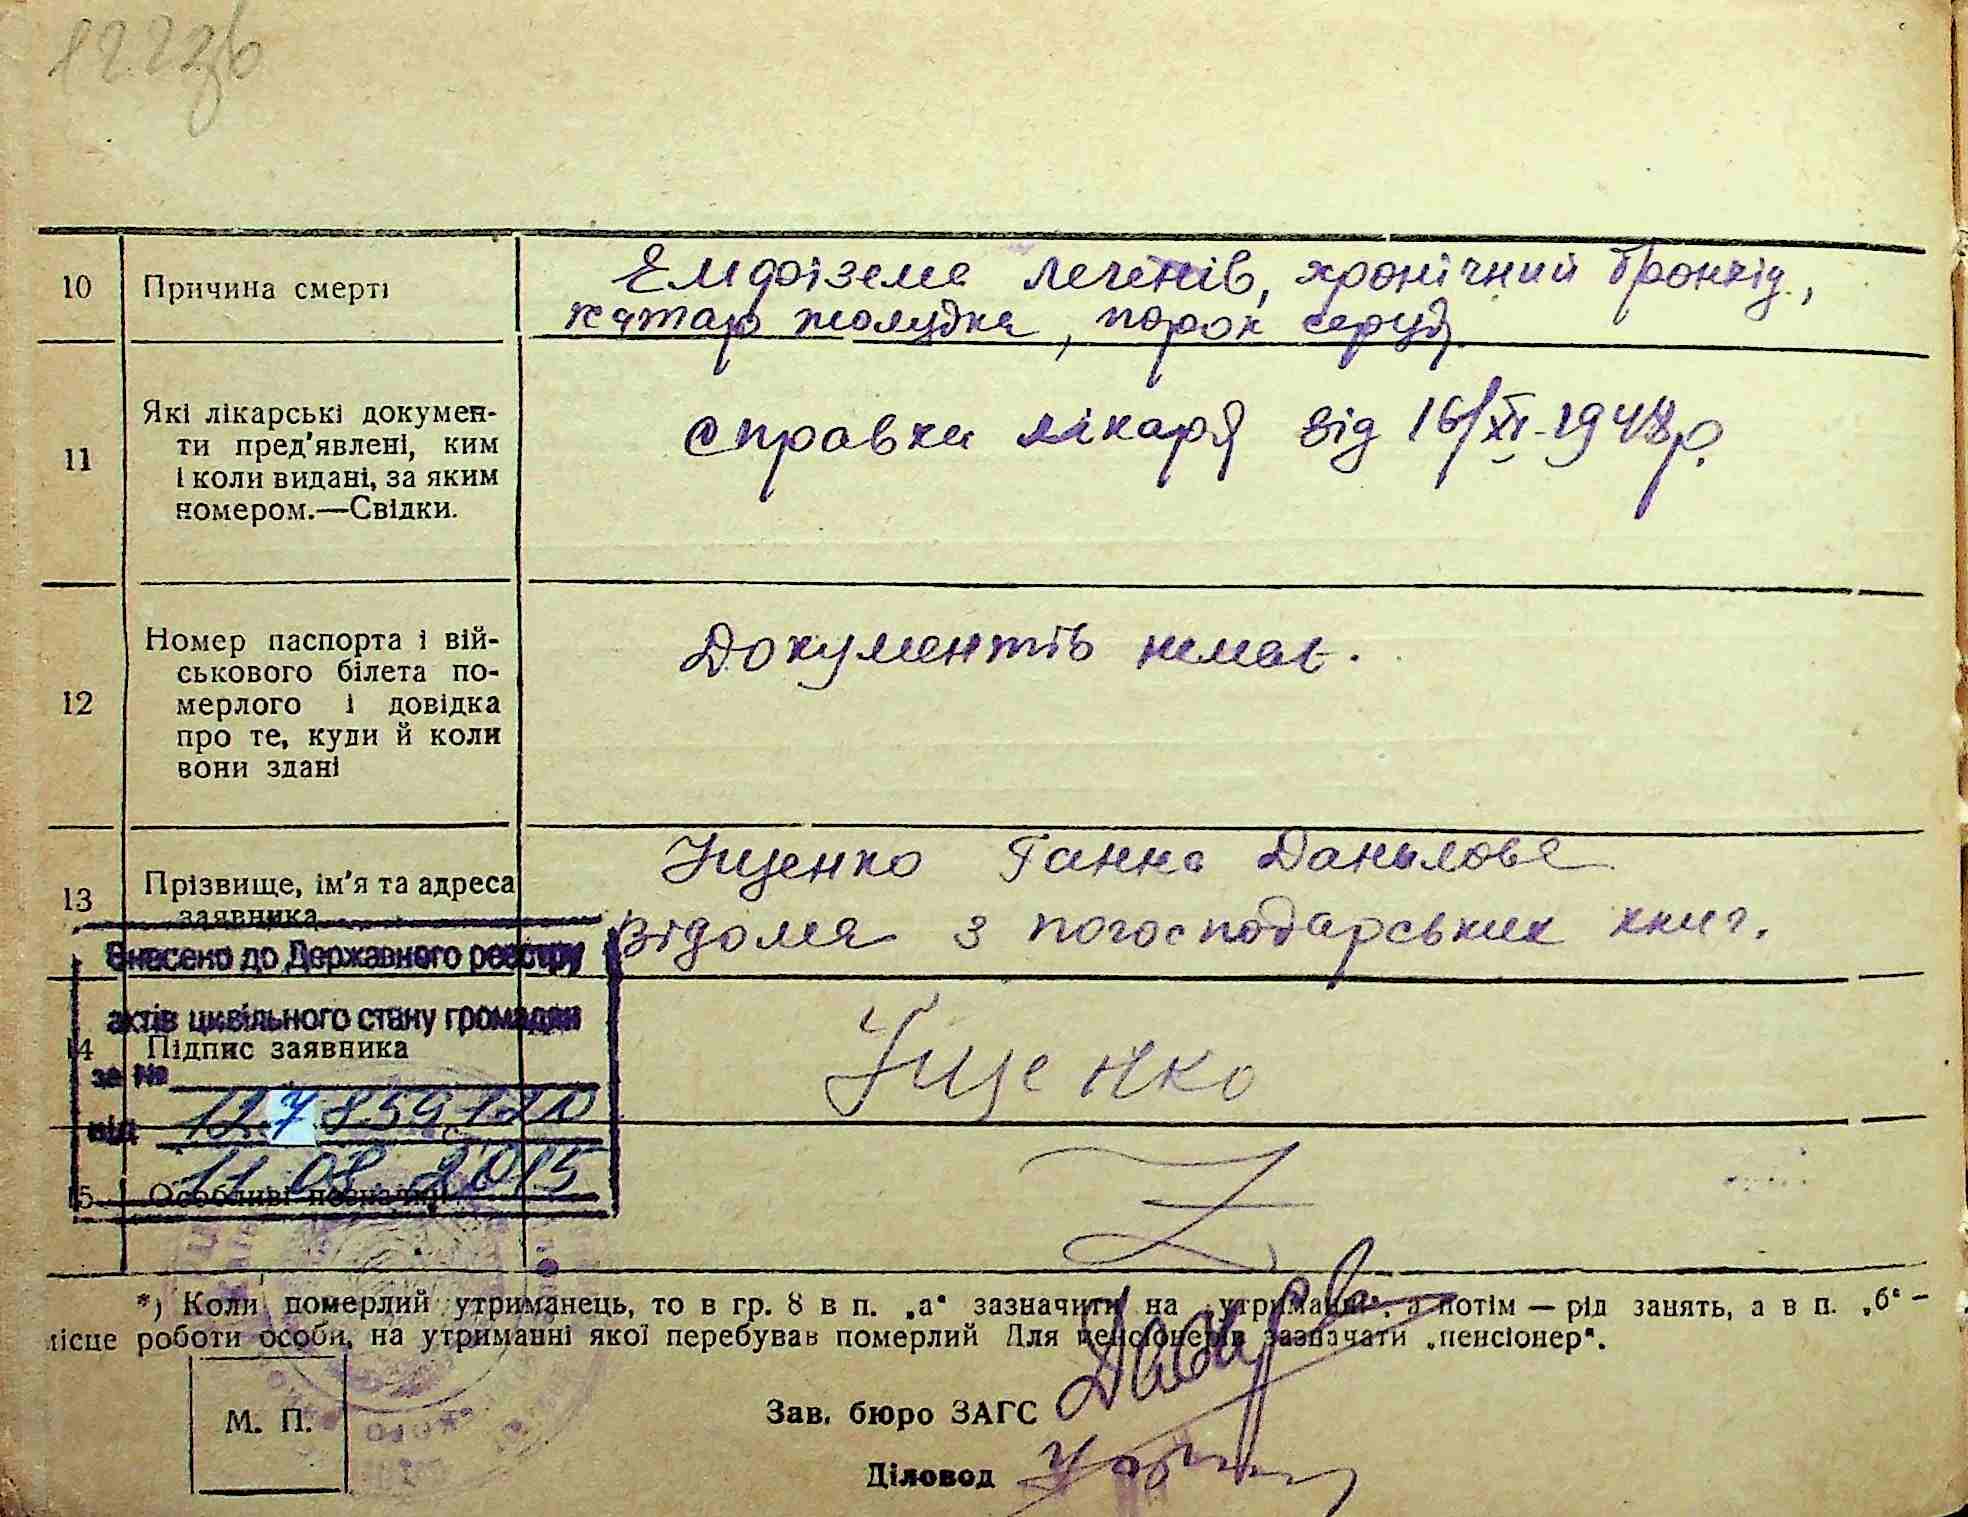 1223б
10 Причина смерті Емфізема легенів, хронічний бронхід,
катар жолудка, порок серця.
11 Які лікарські докумен-
ти пред'явлені, ким
і коли видані, за яким
номером.—Свідки.
справка лікаря від 16/XI-1948р.
12 Номер паспорта і вій-
ськового білета по-
мерлого і довідка
про те, куди й коли
вони здані
Документів немає.
13 Прізвище, ім'я та адреса
заявника
Іщенко Ганна Данилова
відомя з погосподарських книг.
Внесено до Державного реєстру
актів цивільного стану громадян
14 Підпис заявника
Іщенко
за №
12785912
від
11 08 2015
15 Особливі познаки
Z
*) Коли померлий утриманець, то в гр. 8 в п. „а“ зазначити на „утриманні“, а потім — рід занять, а в п. „б“ —
місце роботи особи, на утриманні якої перебував померлий Для пенсіонерів зазначати „пенсіонер“.
М. П.
Зав. бюро ЗАГС
Діловод